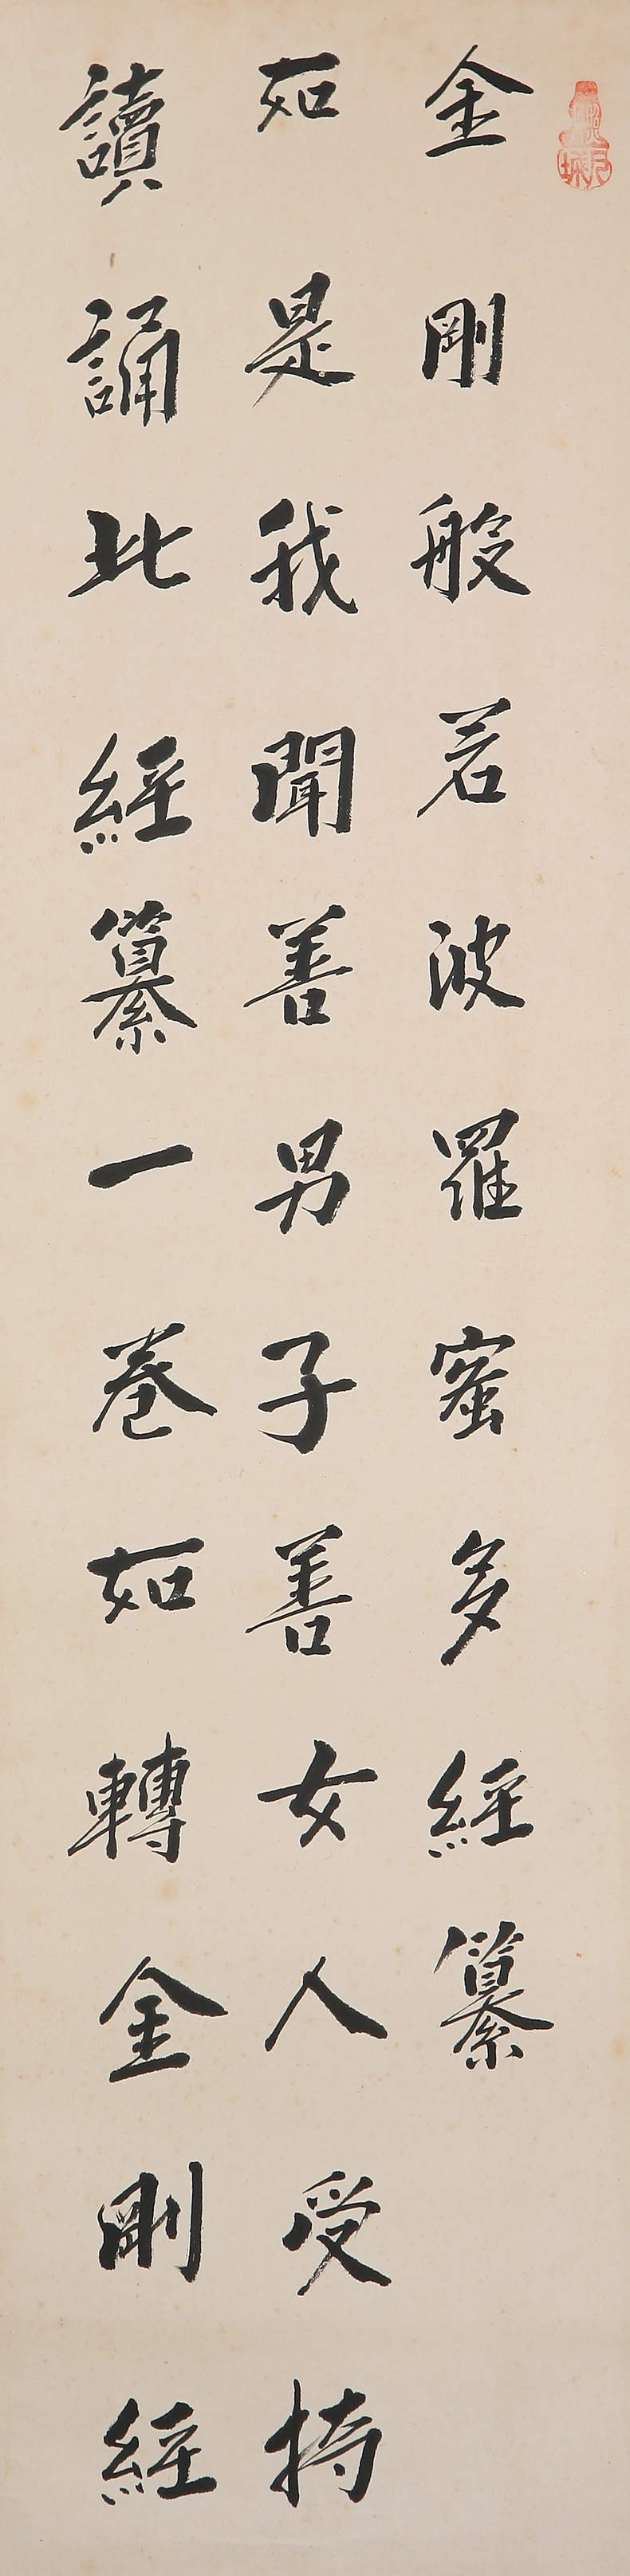 金剛般若波羅蜜多經纂
如是我聞善男子善女人受持
讀誦此經纂一卷如轉金剛經